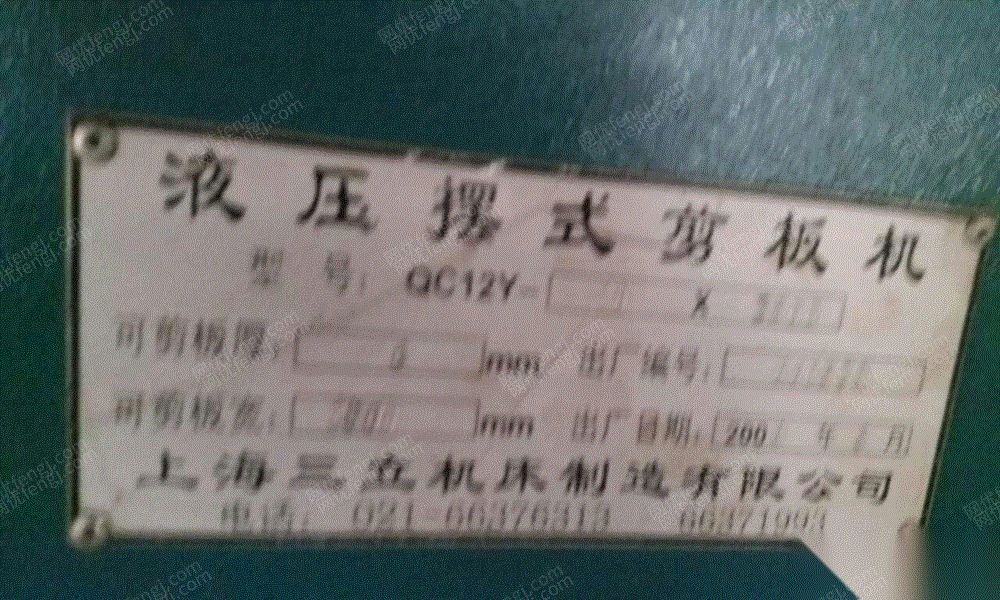 液压摆式剪板机
型号: QC12Y- X
可剪板厚: mm 出厂编号:
可剪板宽: mm 出厂日期: 200 年 月
上海三立机床制造有限公司
电话: 021-66376313 66371993